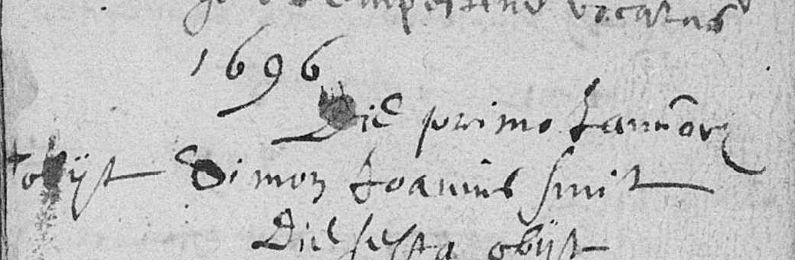 vocatus
1696
Die primo Januar
obijt Simon Joannis smit
Die sesta obijt